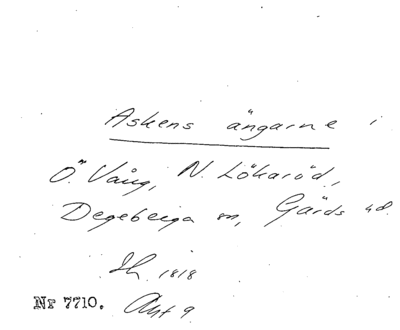 Askens ängarne i
Ö. Vång, N. Lökaröd,
Degeberga sn, Gärds hd.
Sk. 1818
Nr 7710. Akt 9